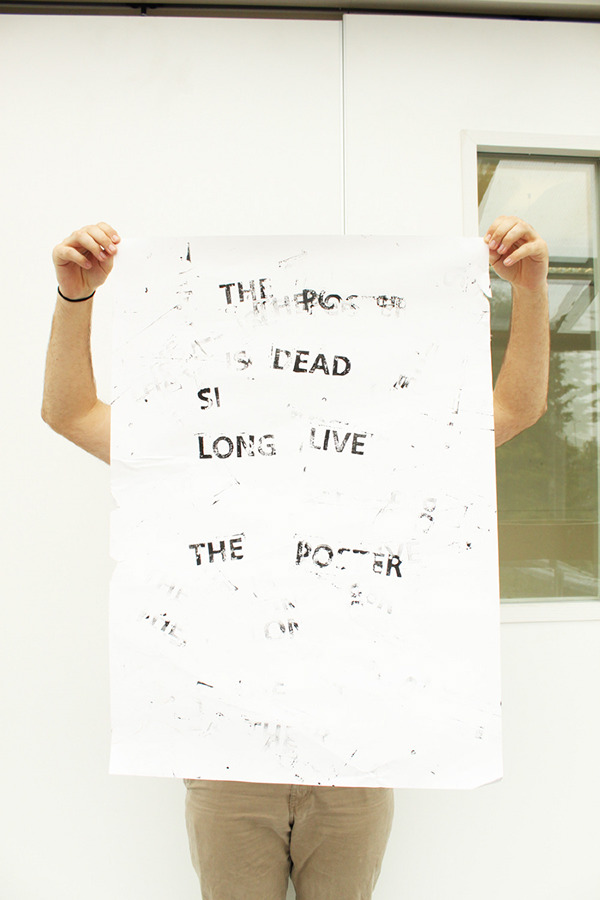 THE POSTER
IS DEAD
SI
LONG LIVE
THE POSTER
THE
OF
THE